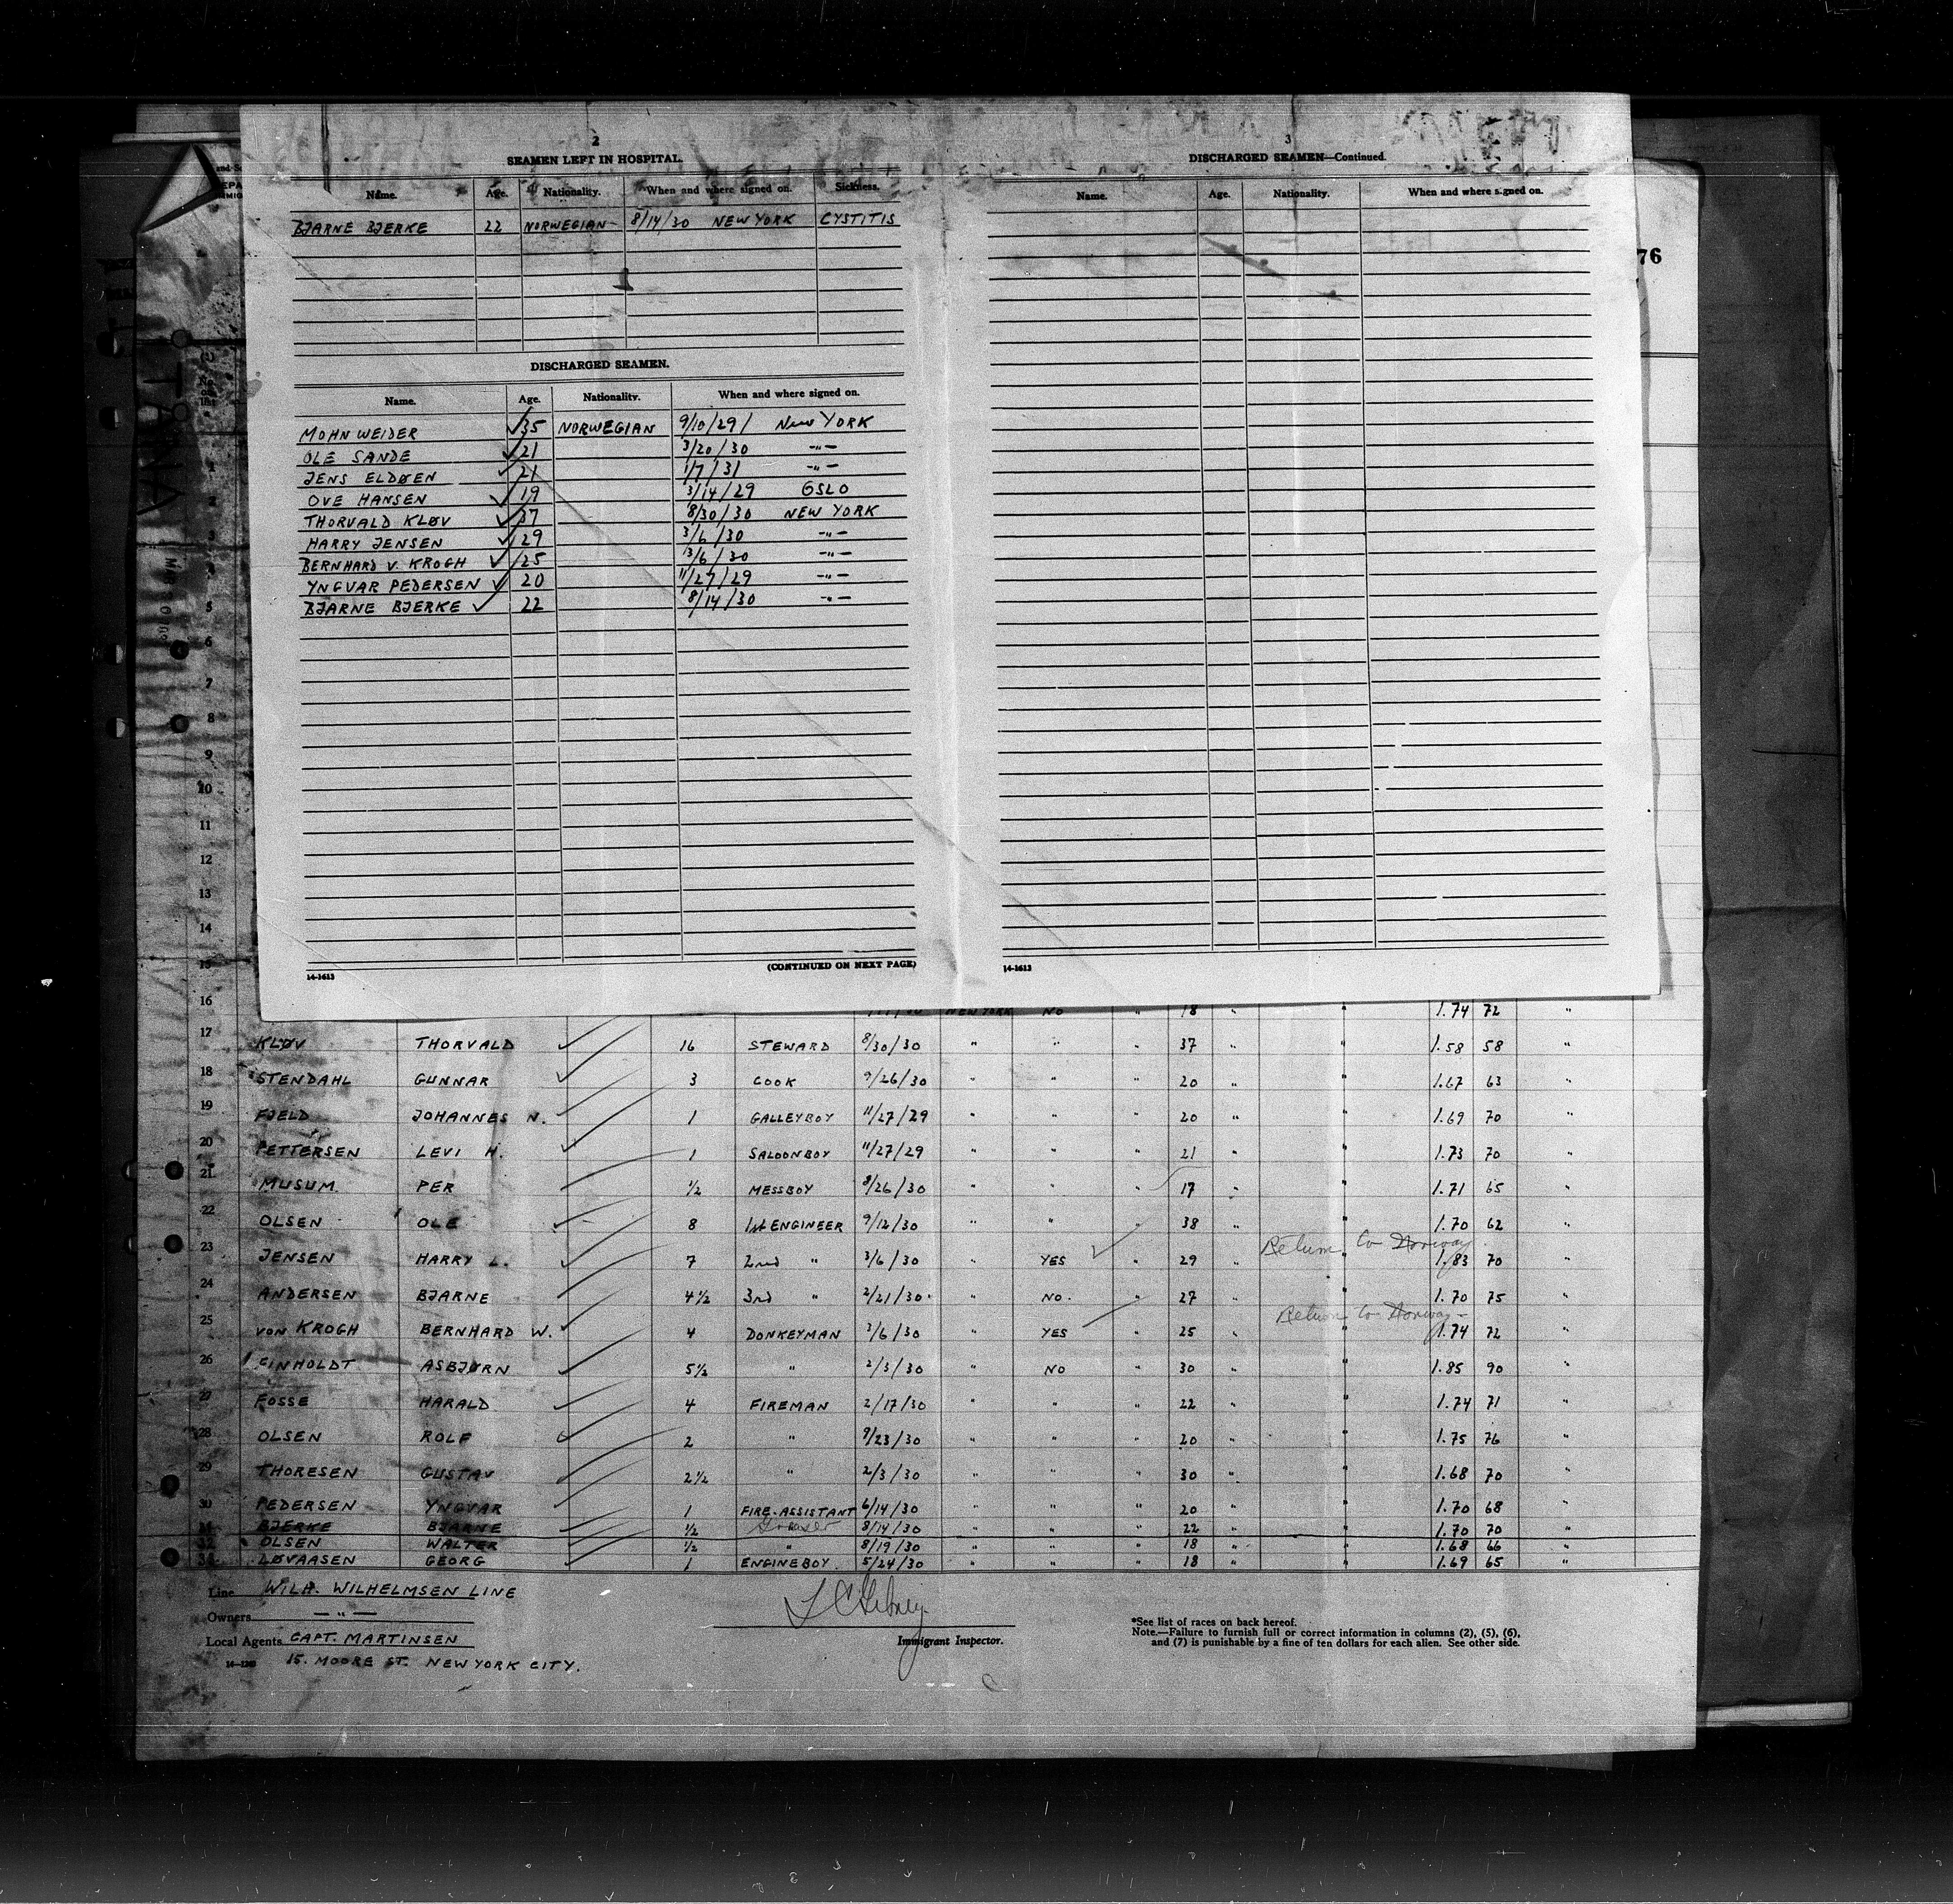 2
SEAMEN LEFT IN HOSPITAL.
Name. Age. Nationality. When and where signed on. Sickness.
BJARNE BJERKE 22 NORWEGIAN 8/14/30 NEW YORK CYSTITIS
DISCHARGED SEAMEN.
Name. Age. Nationality. When and where signed on.
MOHN WEIDER 35 NORWEGIAN 9/10/29 NEW YORK
OLE SANDE 21 3/20/30 -"-
JENS ELDØEN 21 1/7/31 -"-
OVE HANSEN 19 3/14/29 OSLO
THORVALD KLØV 37 8/30/30 NEW YORK
HARRY JENSEN 29 3/6/30 -"-
BERNHARD V. KROGH 25 3/6/30 -"-
YNGVAR PEDERSEN 20 11/27/29 -"-
BJARNE BJERKE 22 8/14/30 -"-
(CONTINUED ON NEXT PAGE)
14-1613
3
DISCHARGED SEAMEN—Continued.
Name. Age. Nationality. When and where signed on.
14-1613
76
TAÑA
No. on list
1
2
3
4
5
6
7
8
9
10
11
12
13
14
15
16 NEW YORK NO " 18 " 1.74 72 "
17 KLØV THORVALD 16 STEWARD 8/30/30 " " " 37 " " 1.58 58 "
18 STENDAHL GUNNAR 3 COOK 9/26/30 " " " 20 " " 1.67 63 "
19 FJELD JOHANNES N. 1 GALLEYBOY 11/27/29 " " " 20 " " 1.69 70 "
20 PETTERSEN LEVI H. 1 SALOONBOY 11/27/29 " " " 21 " " 1.73 70 "
21 MUSUM PER 1/2 MESSBOY 8/26/30 " " " 17 " " 1.71 65 "
22 OLSEN OLE 8 1st ENGINEER 9/12/30 " " " 38 " " 1.70 62 "
Return to Norway
23 JENSEN HARRY L. 7 2nd " 3/6/30 " YES " 29 " " 1.83 70 "
24 ANDERSEN BJARNE 4 1/2 3rd " 2/21/30 " NO. " 27 " " 1.70 75 "
Return to Norway
25 von KROGH BERNHARD W. 4 DONKEYMAN 3/6/30 " YES " 25 " " 1.74 72 "
26 ASBJØRN 5 1/2 " 2/3/30 " NO " 30 " " 1.85 90 "
27 FOSSE HARALD 4 FIREMAN 2/17/30 " " " 22 " " 1.74 71 "
28 OLSEN ROLF 2 " 9/23/30 " " " 20 " " 1.75 76 "
29 THORESEN GUSTAV 2 1/2 " 2/3/30 " " " 30 " " 1.68 70 "
30 PEDERSEN YNGVAR 1 FIRE-ASSISTANT 6/14/30 " " " 20 " " 1.70 68 "
31 BJERKE BJARNE 1/2 8/14/30 " " " 22 " " 1.70 70 "
32 OLSEN WALTER 1/2 " 8/19/30 " " " 18 " " 1.68 66 "
33 LØVAASEN GEORG 1 ENGINEBOY 5/24/30 " " " 18 " " 1.69 65 "
Line WILH. WILHELMSEN LINE
Owners -"-
Local Agents CAPT. MARTINSEN
15. MOORE ST. NEW YORK CITY.
Immigrant Inspector.
*See list of races on back hereof.
Note.—Failure to furnish full or correct information in columns (2), (5), (6),
and (7) is punishable by a fine of ten dollars for each alien. See other side.